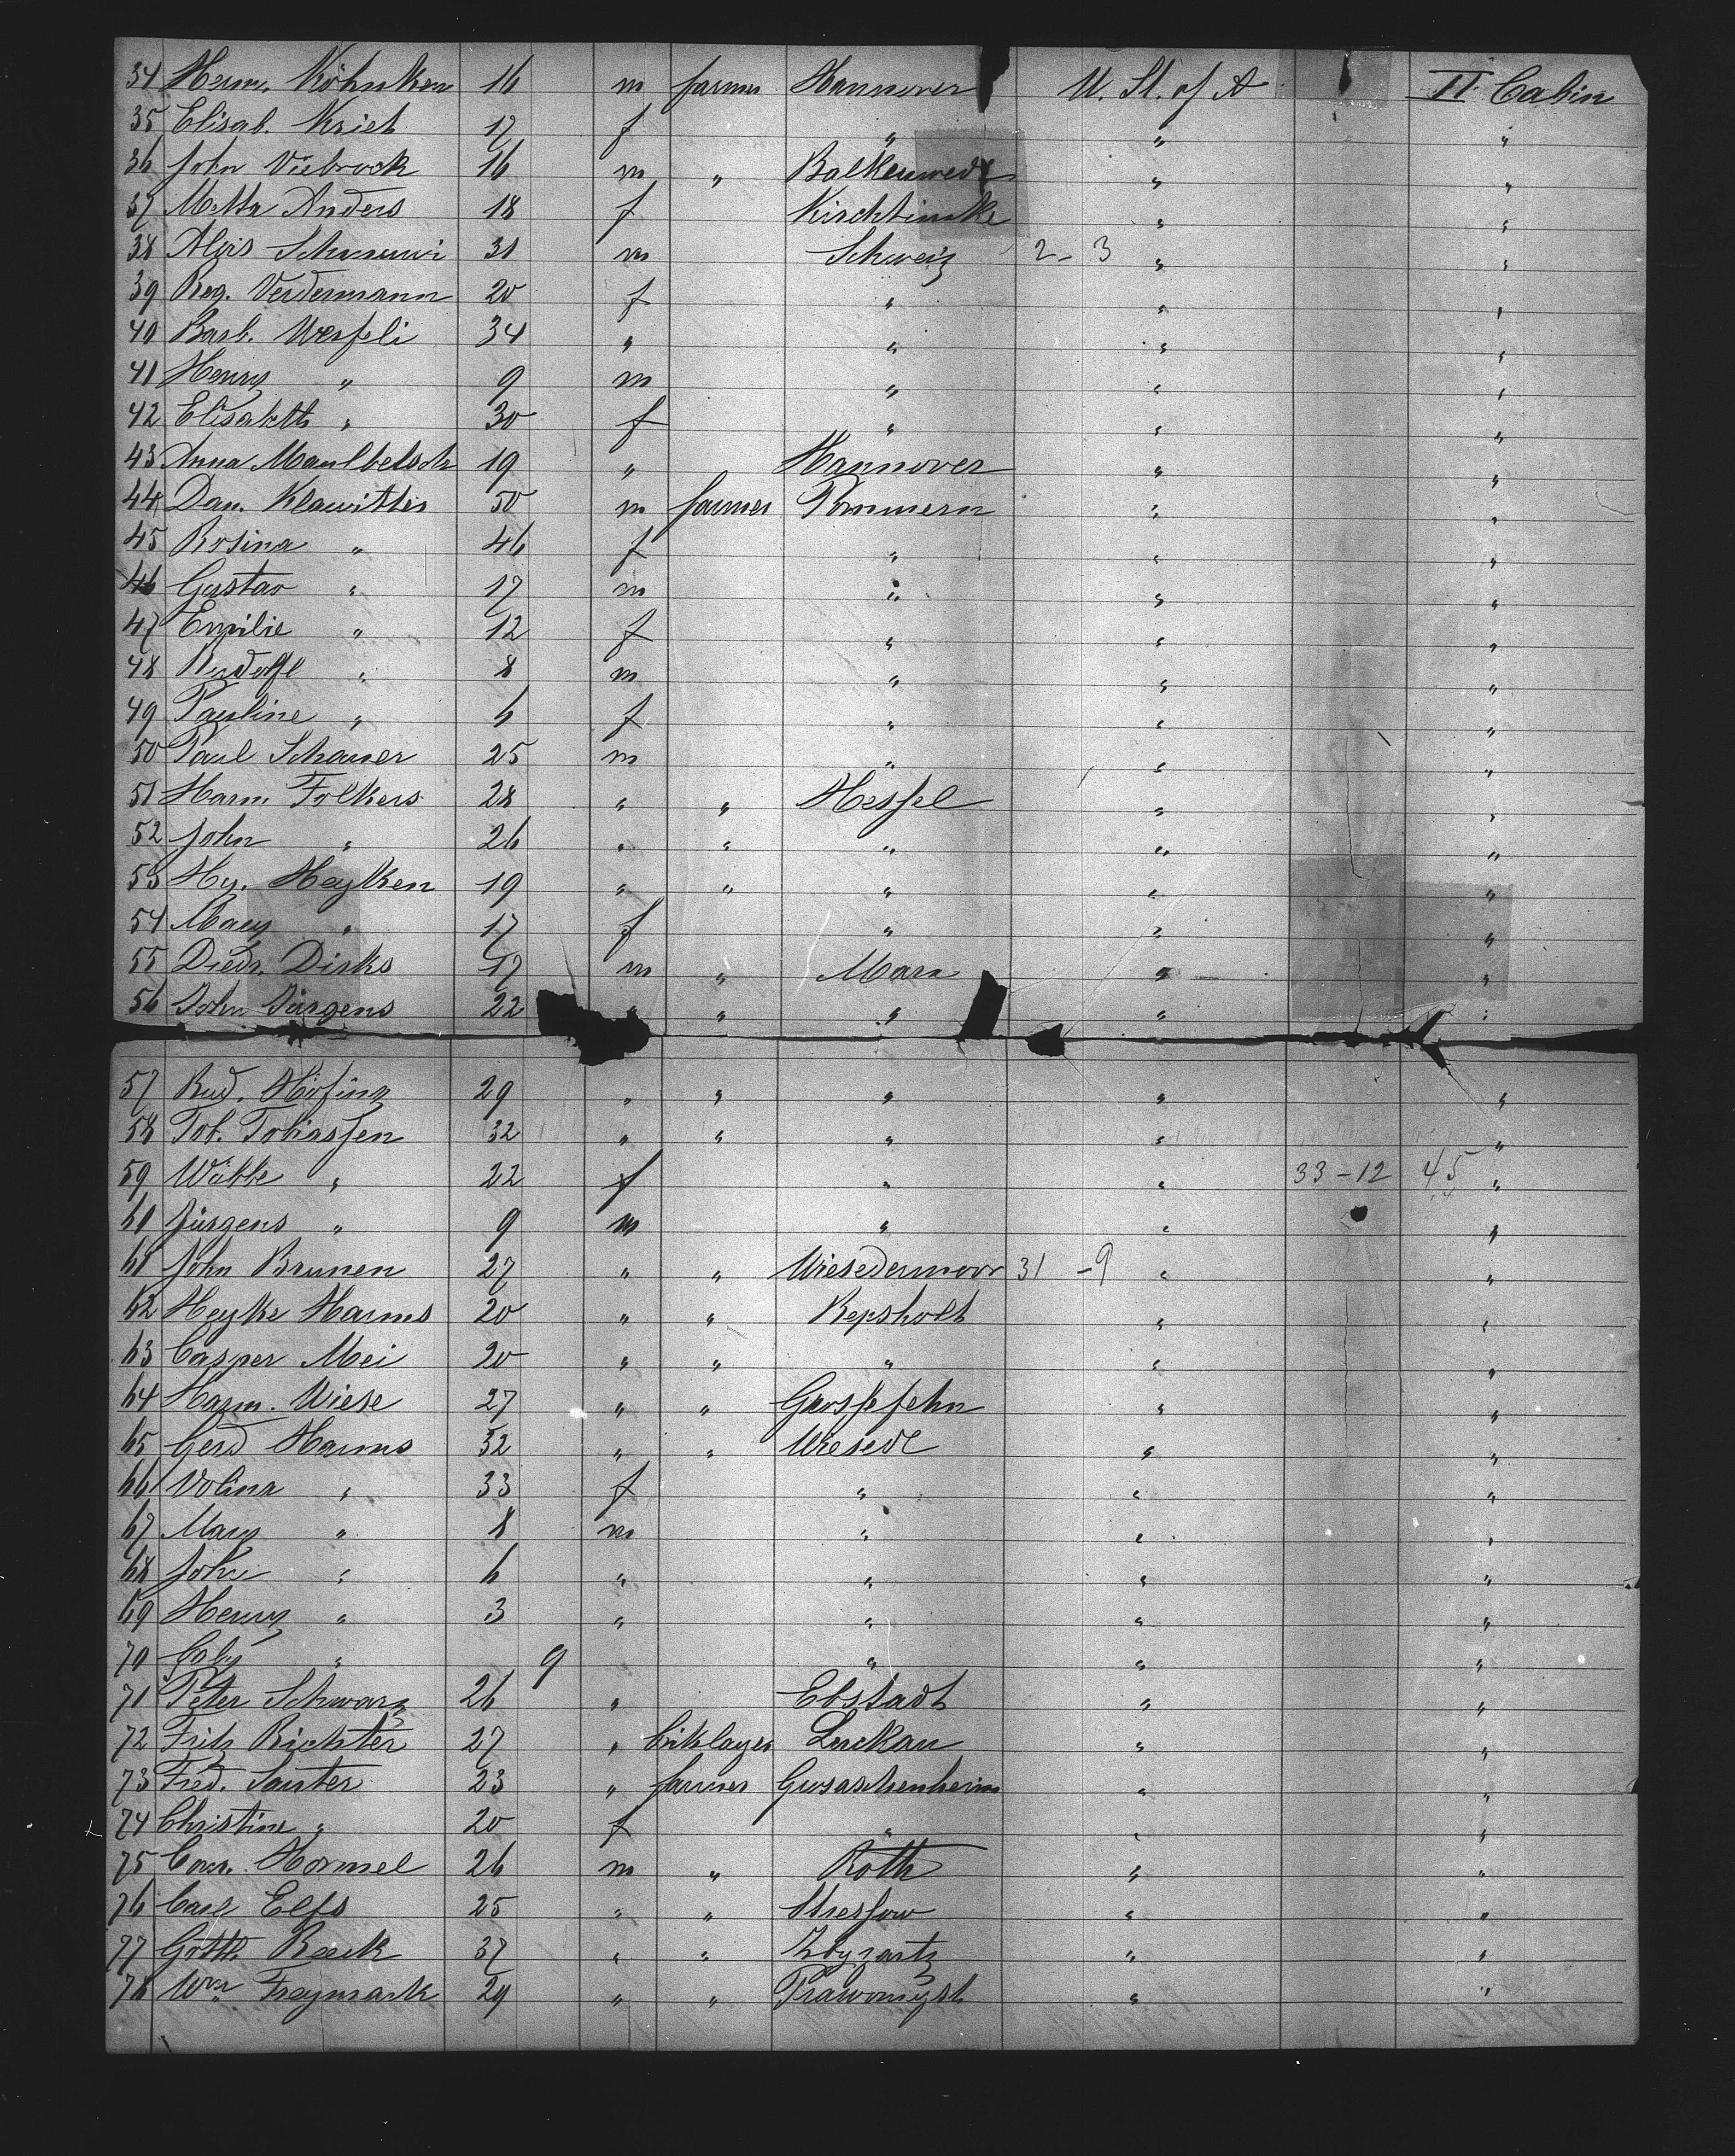 34 Herm. Köhnken 16 m farmer Hannover U. St. of A II Cabin
35 Elisab. Kriet 17 f " " "
36 John Viebrock 16 m " Balkenwede " "
37 Metta Anders 18 f Kirchtimke " "
38 Alois 31 m Schweiz 2 - 3 " "
39 Reg. Verdermann 20 f " " "
40 Barb. Werfeli 34 " " " "
41 Henry " 9 m " " "
42 Elisabeth " 30 f " " "
43 Anna Maulbetsch 19 " Hannover " "
44 Dan. Klawitter 50 m farmer Pommern " "
45 Rosina " 46 f " " "
46 Gustav " 17 m " " "
47 Emilie " 12 f " " "
48 Rudolf " 8 m " " "
49 Pauline " 6 f " " "
50 Paul Schauer 25 m " " "
51 Harm. Folkers 28 " " Hessel " "
52 John " 26 " " " " "
53 Hy. Heyken 19 " " " " "
54 Mary " 17 f " " "
55 Diedr. Dirks 17 m " Marx " "
56 John Jürgens 22 " " " " "
57 Rud. 29 " " " " "
58 Tob. Tobiassen 32 " " " " "
59 Wübke " 22 f " " 33 - 12 45 "
60 Jürgens " 9 m " " "
61 John Brunen 27 " " Wiesedermoor 31 - 9 " "
62 Heyke Harms 20 " " Repsholt " "
63 Casper Mei 20 " " " " "
64 Harm. Wiese 27 " " Grossefehn " "
65 Gerd Harms 32 " " Wiesede " "
66 Volina " 33 f " " "
67 Mary " 8 m " " "
68 John " 6 " " " "
69 Henry " 3 " " " "
70 " 9 " " "
71 Peter Schwarz 26 " Ebstadt " "
72 Fritz Richter 27 " Luckau " "
73 Fred. Sauter 23 " farmer " "
74 Christine " 20 f " " "
75 Conr. Hormel 26 m " Röth " "
76 Carl Elfs 25 " " Stressow " "
77 Gottl. Raeck 37 " " " "
78 Wm Freymark 29 " " " "